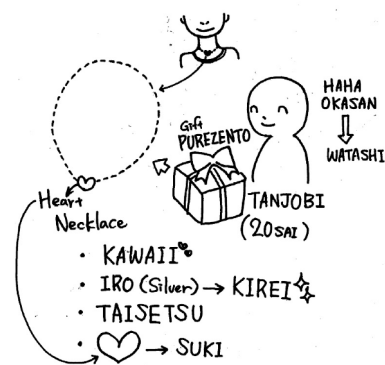 HAHA
OKASAN
WATASHI
Gift
PUREZENTO
TANJOBI
(20SAI)
Heart
Necklace
・ KAWAII
・ IRO (Silver) → KIREI
・ TAISETSU
・ → SUKI